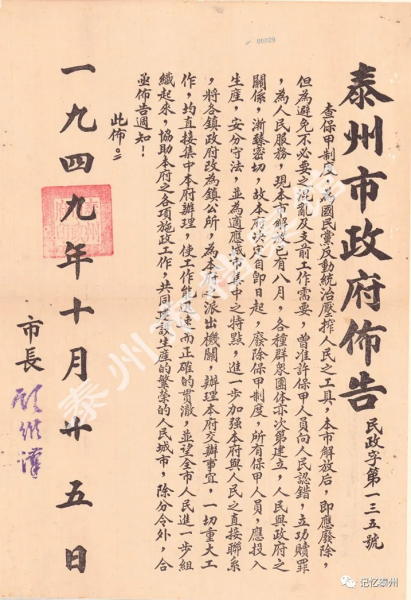 00029
泰州市政府佈告
民政字第一三五號
查保甲制度,為國民黨反動統治壓搾人民之工具,本市解放后,即應廢除,
但為避免不必要之混亂及支前工作需要,曾准許保甲人員向人民認錯,立功贖罪
,為人民服務,現本市解放已有八月,各種群衆團体亦次第建立,人民與政府之
關係,漸臻密切,故本府决定自即日起,廢除保甲制度,所有保甲人員,應投入
生産,安分守法,並為適應城市集中之特點,進一步加强本府與人民之直接聯系
,將各鎮政府改為鎮公所,為本府之派出機關,辦理本府交辦事宜,一切重大工
作,均直接集中本府辦理,使工作能迅速而正確的貫澈,並望全市人民進一步組
織起來,協助本府之各項施政工作,共同建設生産的繁榮的人民城市,除分令外,合
亟佈告通知!
此佈。
市長
一九四九年十月廿五日
记忆泰州